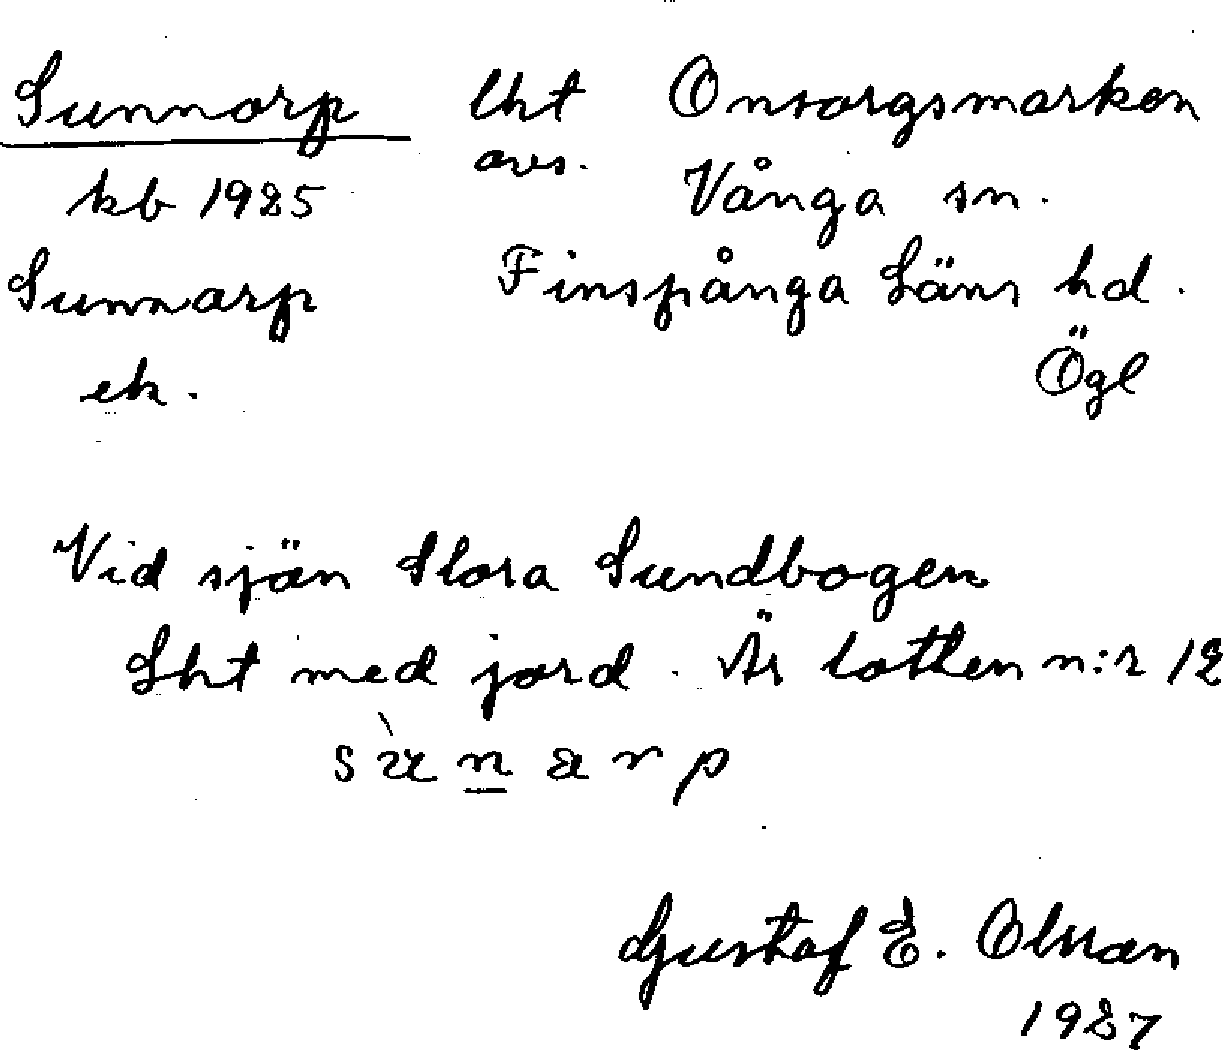 Sunnorp lht Onsorgsmarken
avs.
kb 1925 Vånga sn.
Sunnarp Finspånga Läns hd.
ek. Ögl
Vid sjön Stora Sundbogen
Lht med jord. Är lotten n:r 12
sùnarp
Gustaf E. Olsson
1927